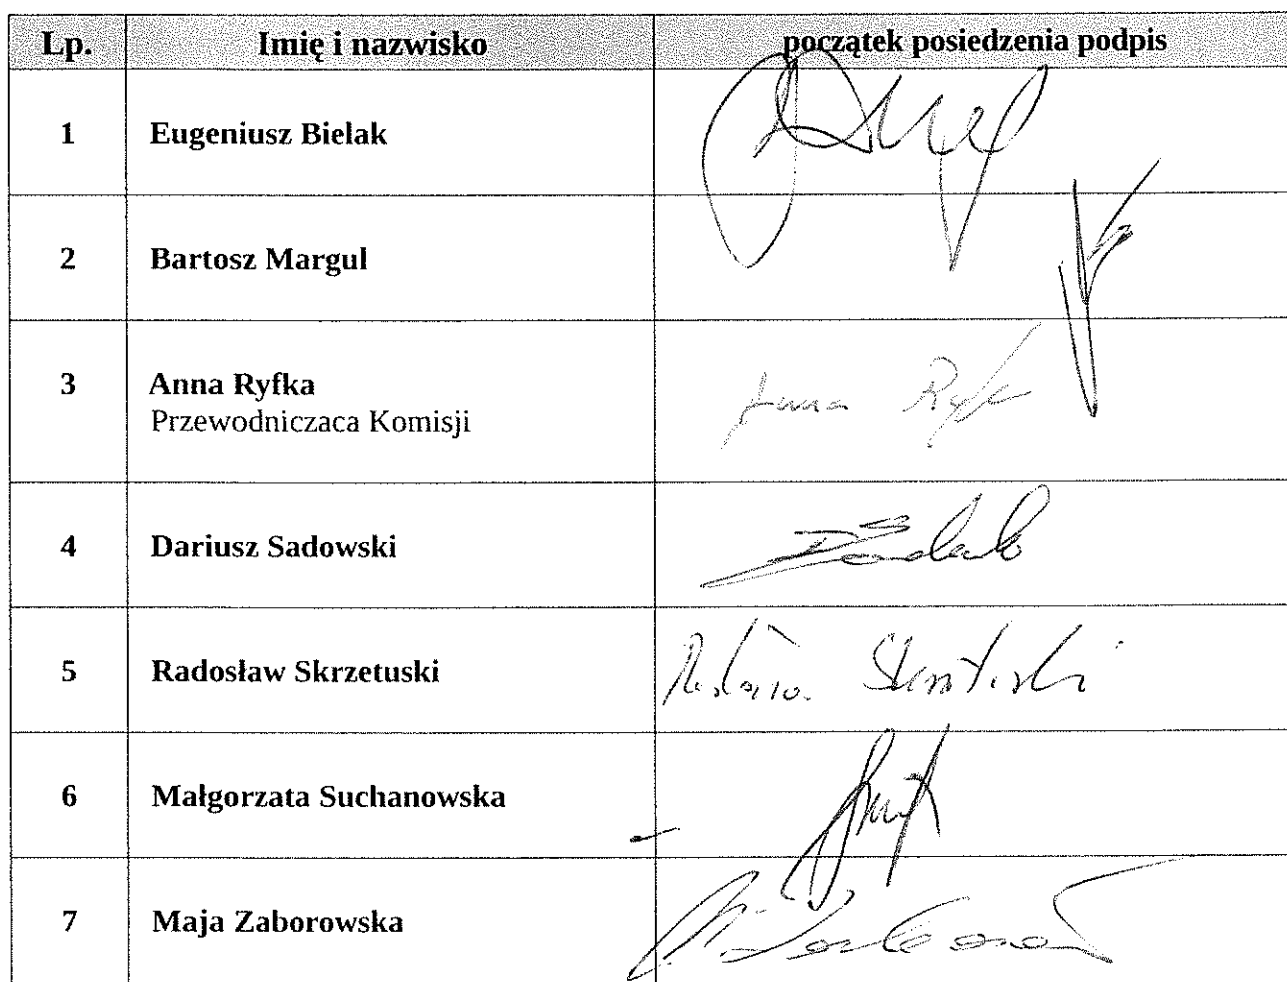 Lp. Imię i nazwisko początek posiedzenia podpis
1 Eugeniusz Bielak
2 Bartosz Margul
3 Anna Ryfka
Przewodniczaca Komisji
Anna Ryfk
4 Dariusz Sadowski
5 Radosław Skrzetuski
6 Małgorzata Suchanowska
7 Maja Zaborowska